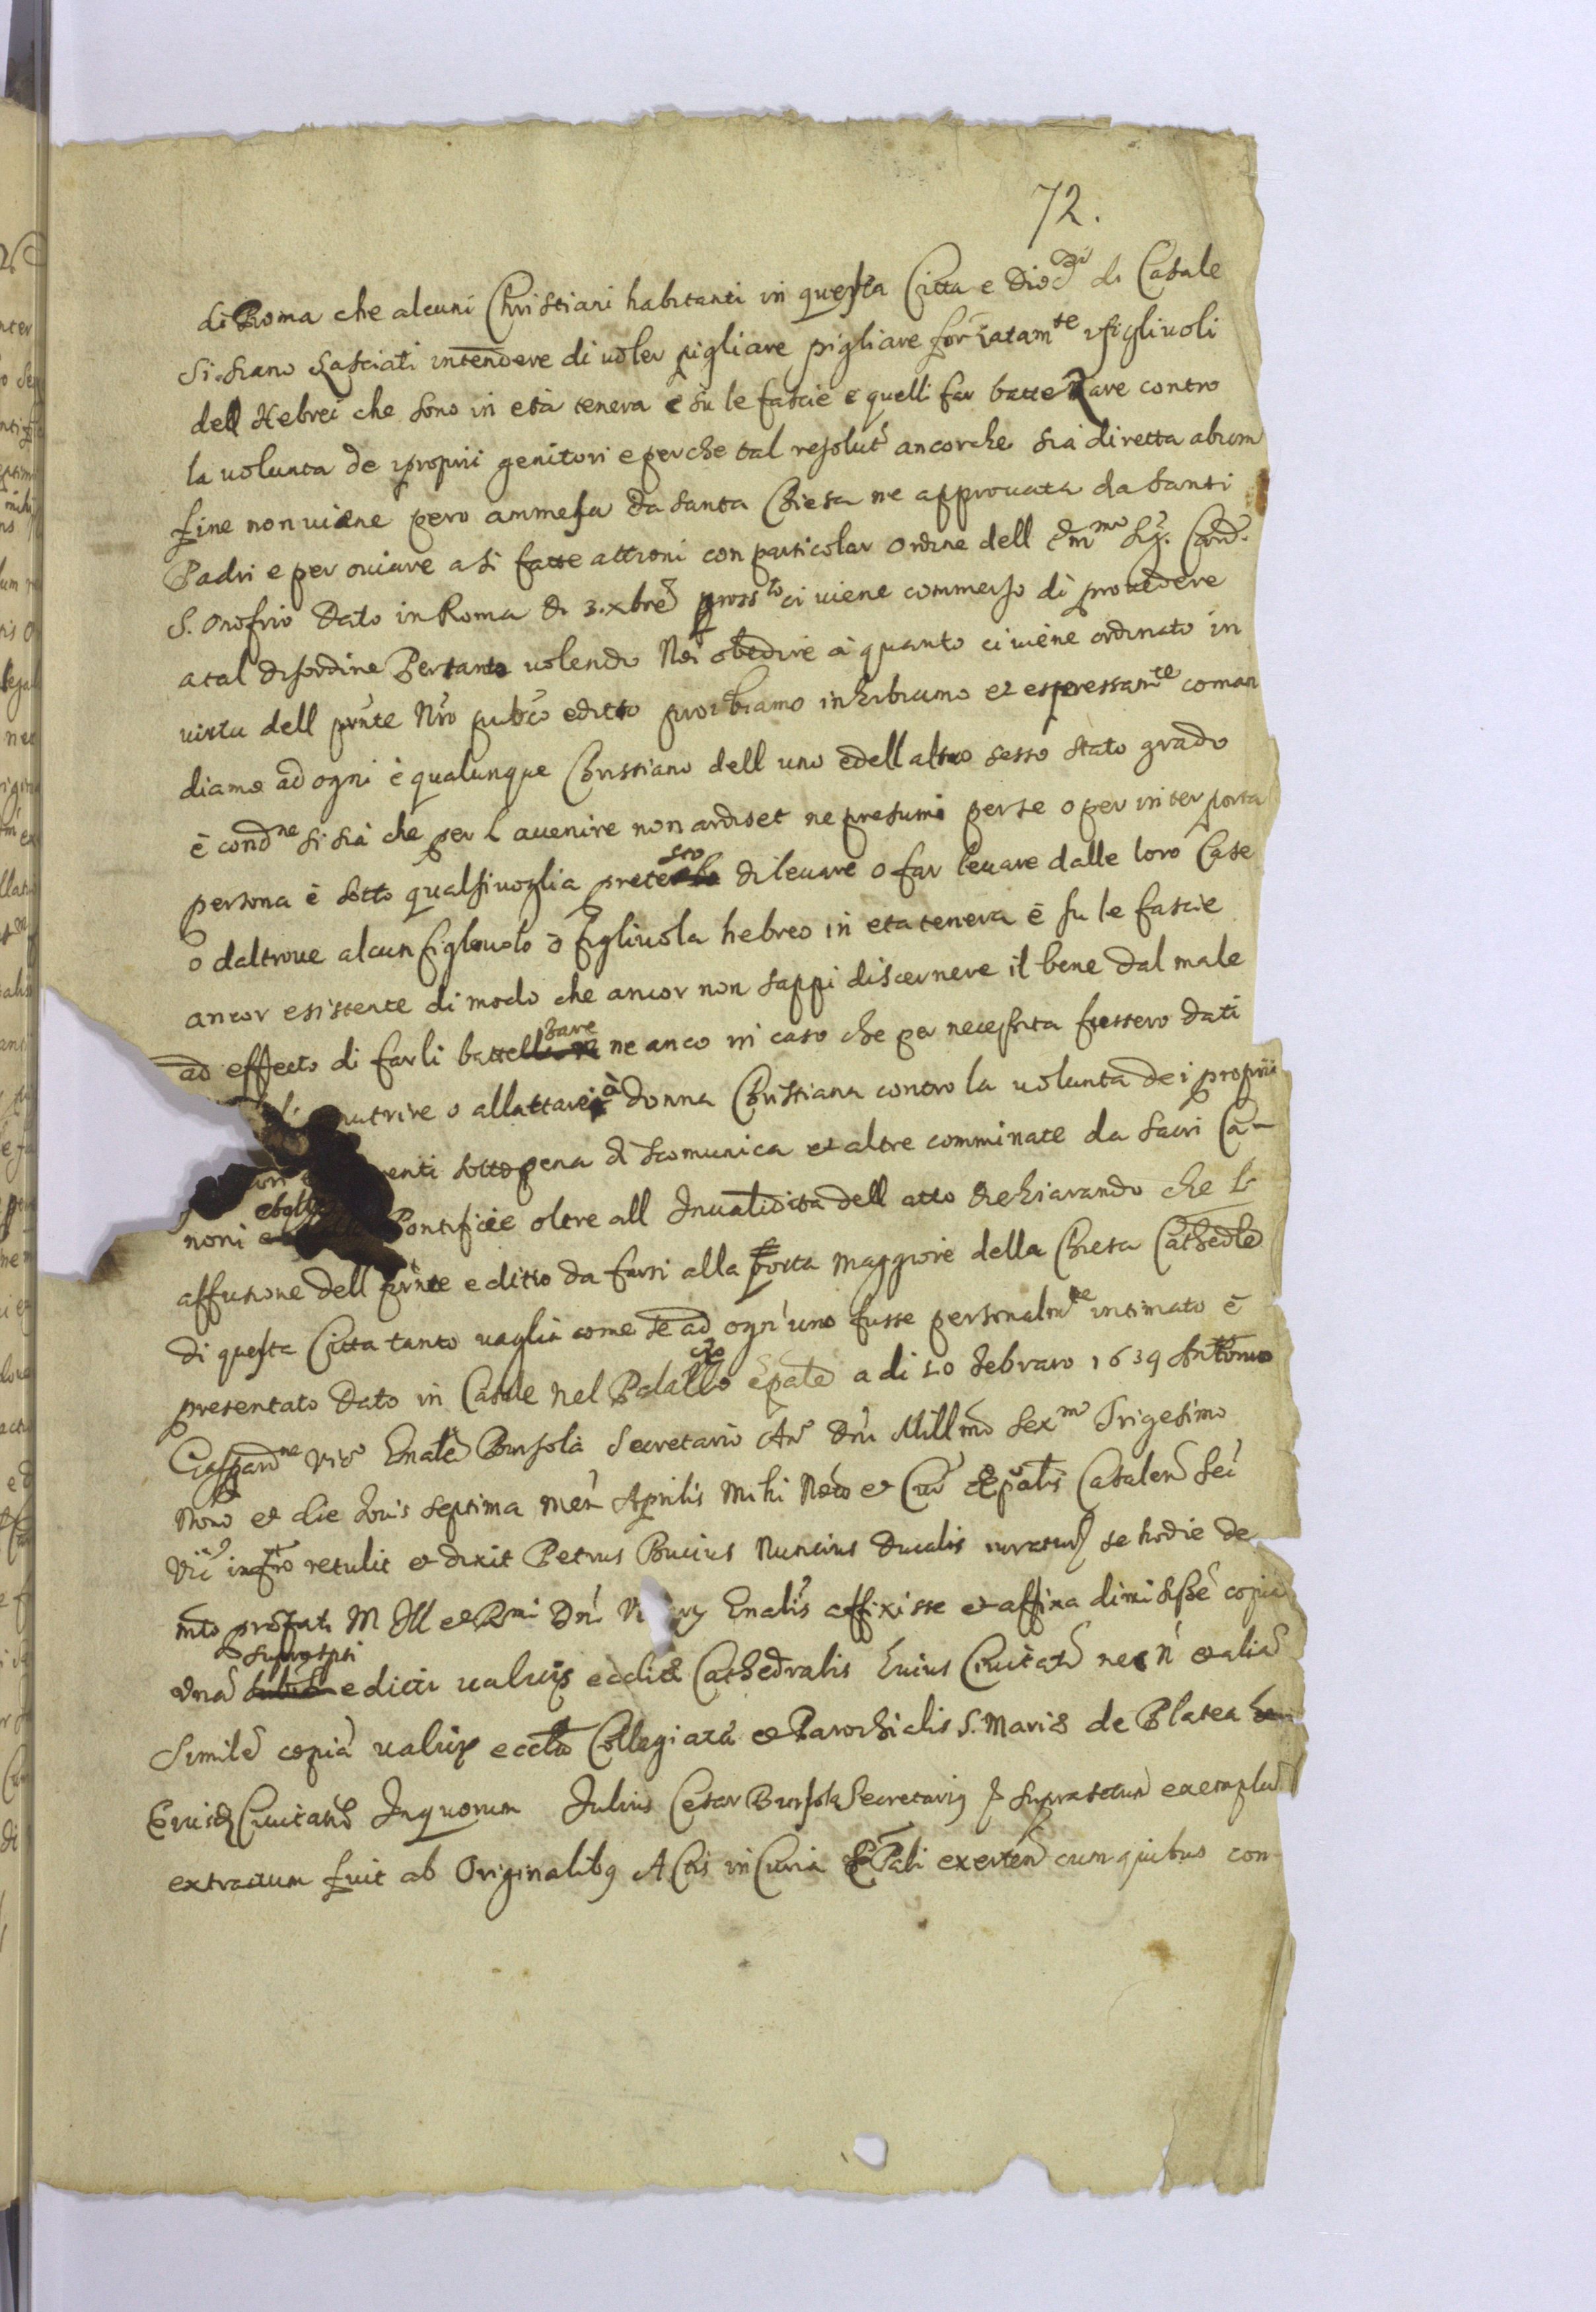 72.
di Roma che alcuni Christiani habitanti in questa Citta e Dioc.si di Casale
si siano Lasciati intendere di voler pigliare pigliare forzatamte i figliuoli
dell Hebrei che sono in età tenera è sù le fascie e quelli far battezare contro
la volunta de proprii genitori e perche tal resolut. ancorche sia diretta a buon
fine non viene pero ammessa da santa Chiesa ne approvata da santi
Padri e per oviare a si fatte attioni con particolar ordine dell Em.mo Sig. Card.
S. Onofrio Dato in Roma di 3. xbre pross.to ci viene commesso di provedere
a tal disordine Pertanto volendo Noi obedire à quanto ci viene ordinato in
virtu dell pnte Nro pubco editto proibiamo inhibiamo et espressamte coman
diamo ad ogni è qualunque Christiano dell uno e dell altro sesso stato grado
è condne si sia che per l avenire non ardisct ne presumi per se o per interposta
persona è sotto qualsivoglia pretesto di levare o far levare dalle loro Case
o daltrove alcun figlivolo ò figlivola hebreo in eta tenera è su le fascie
ancor esistente di modo che ancor non sappi discernere il bene dal male
ad effecto di farli battezare ne anco in caso che per necessita fussero dati
nutrire o allattare à donna Christiana contro la volunta dei proprii
enti sotto pena di scomunica et altre comminate da sacri Ca-
noni e bolle Pontificie oltre all Invalidita dell atto dichiarando che l
affissione dell pnte editto da farsi alla porta maggiore della Chiesa Cathedle
di questa Citta tanto vaglia come se ad ogn'uno fusse personalmte intimato è
presentato Dato in Casale nel Palazzo Epale a di 20 febraro 1639 Antonio
Gaspardne Vic. Gnale Bursola Secretario An. Dni Millmo Sex.mo Trigesimo
Nono et die Jovis septima men. Aprilis Mihi Noto et Cur. Epalis Casalen. Sci
infro retulit et dixit Petrus Bucius Nuncius Ducalis se hodie de
mto prefati M Ill et Rmi Dni Gnalis affixisse et affixa dimisisse copia
una suprascpti edicti valvis ecclie Cathedralis huius Civitatis nec n. et alia
simile copia valvis eccle Collegiata et Parochialis S. Marie de Platea
eiusd Civitatis In quorum Julius Cesar Bursola Secretarius suprascptum exemplu
extractum fuit ab Originalibus Actis in Curia Epali existen cum quibus con-